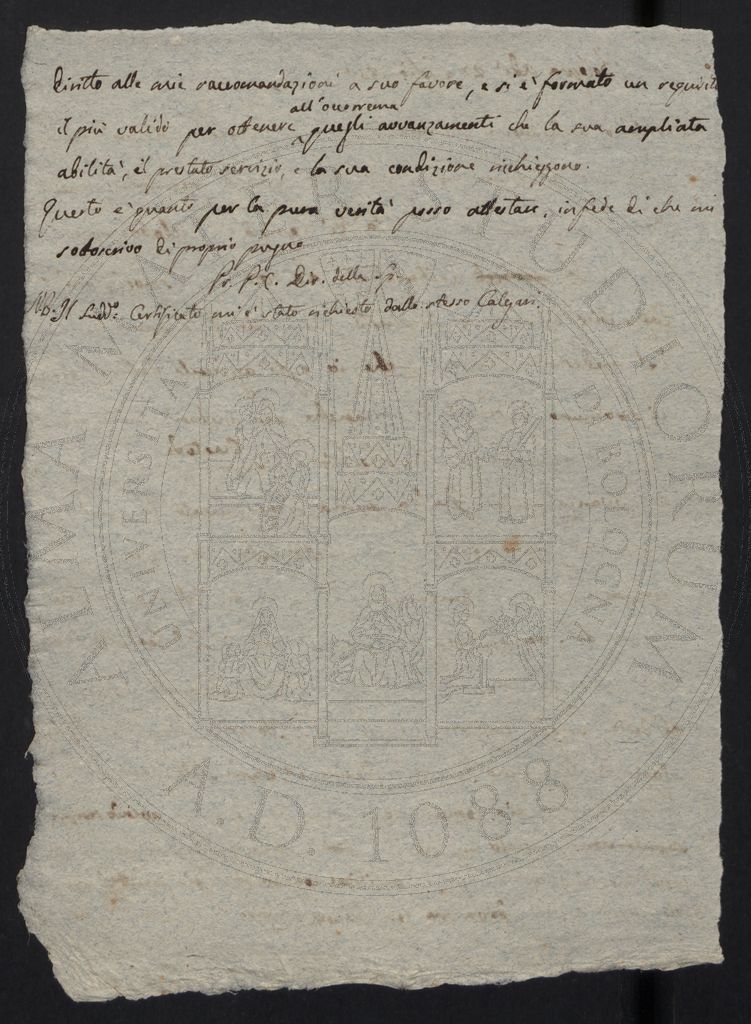 diritto alle mie raccomandazioni a suo favore, e si è formato un requisito
all'occorrenza
il più valido per ottenere quegli avvanzamenti che la sua ampliata
abilità, il prestato servizio, e la sua condizione richieggono.
Questo è quanto per la pura verità posso attestare, in fede di che mi
sottoscrivo di proprio pugno
Pr. P. C. Dir. della Sp.
NB. Il sudd.º Certificato mi è stato richiesto dallo stesso Calegari.
ALMA MATER STUDIORUM
UNIVERSITÀ DI BOLOGNA
A.D. 1088